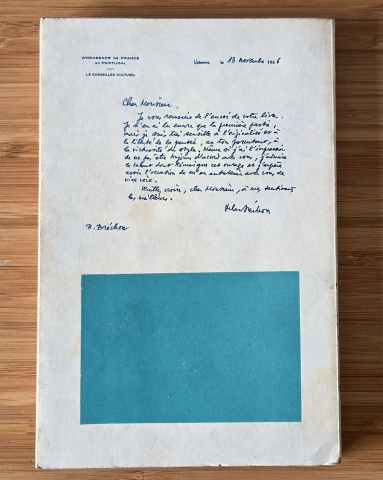 AMBASSADE DE FRANCE
AU PORTUGAL
LE CONSEILLER CULTUREL
Lisbonne, le 13 novembre 1966
Cher Monsieur,
Je vous remercie de l'envoi de votre livre.
Je n'en ai lu encore que la première partie,
mais je suis très sensible à l'originalité et à
la liberté de la pensée, au ton
à
du style. Même si j'ai l'impression
de ne pas être toujours d'accord avec vous, j'admire
le talent dont témoigne cet ouvrage et j'espère
avoir l'occasion de m'en entretenir avec vous de
vive voix.
Veuillez croire, cher Monsieur, à mes sentiments
les meilleurs.
R. Bréchon